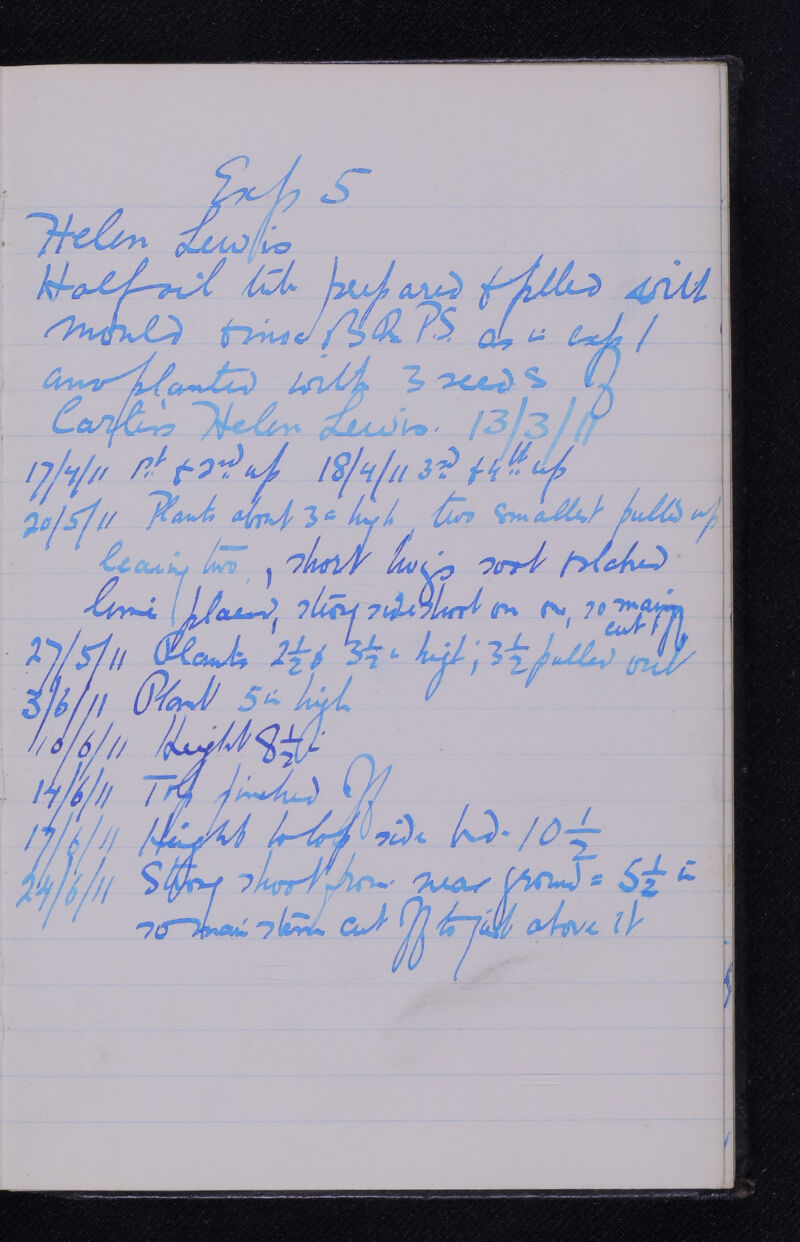 Exp 5
Helen Lewis
Half oil tub prepared & filled with
mould & inse B & P.S. as in exp 1
and planted with 3 seeds of
Carters Helen Lewis. 13/3/11
17/4/11 1st & 2nd up 18/4/11 3rd & 4th up
20/5/11 Plants about 3in high two smallest pulled up
leaving two, short twigs soot & slaked
lime placed, strong side shoot on one, so main
cut off
27/5/11 Plants 2½ & 3½in high; 3½ pulled out
3/6/11 Plant 5in high
10/6/11 Height 8½in
14/6/11 Top pinched off
17/6/11 Height to top side bud. 10½
24/6/11 Strong shoot from near ground = 5½in
so main stem cut off to just above it